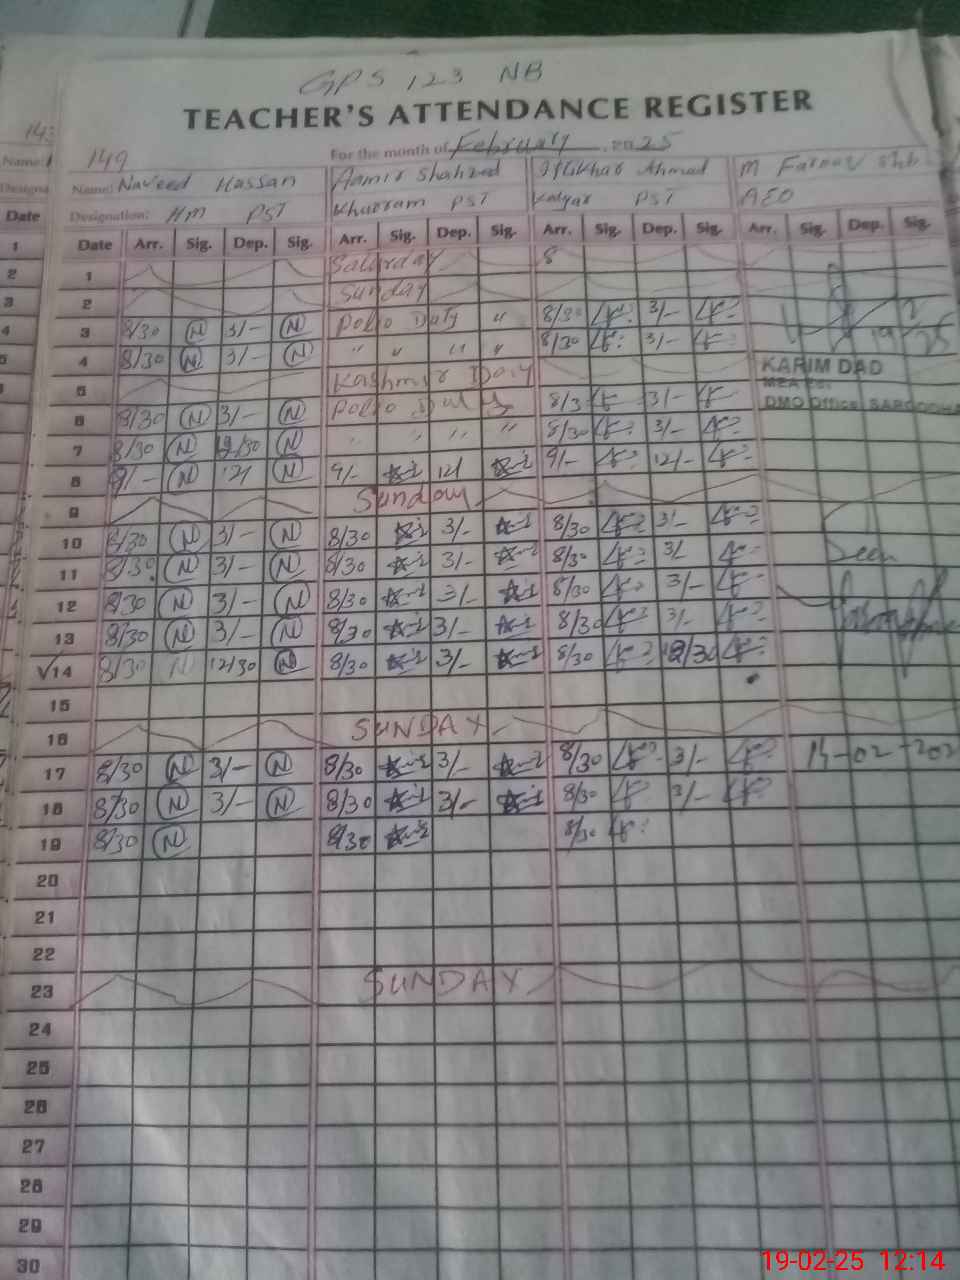 GPS 123 NB
TEACHER'S ATTENDANCE REGISTER
149 For the month of February, 2025
Name: Naveed Hassan Aamir Shahzad Iftikhar Ahmad M Farooq Shb
Designation: HM PST Khurram PST Kalyar PST AEO
Date Arr. Sig. Dep. Sig. Arr. Sig. Dep. Sig. Arr. Sig. Dep. Sig. Arr. Sig. Dep. Sig.
1 Saturday 8
2 Sunday
3 8/30 N 3/- N Polio Duty " 8/30 3/-
4 8/30 N 3/- N " " " " 8/30 3/-
5 Kashmir Day
6 8/30 N 3/- N Polio Duty 8/3 3/-
7 8/30 N 12/30 N " " " " 8/30 3/-
8 9/- N 12/ N 9/- 12/ 9/- 12/-
9 Sunday
10 8/30 N 3/- N 8/30 3/- 8/30 3/-
11 8/30 N 3/- N 8/30 3/- 8/30 3/
12 8/30 N 3/- N 8/30 3/- 8/30 3/-
13 8/30 N 3/- N 8/30 3/- 8/30 3/-
√14 8/30 N 12/30 N 8/30 3/- 8/30 12/30
15
16 SUNDAY
17 8/30 N 3/- N 8/30 3/- 8/30 3/-
18 8/30 N 3/- N 8/30 3/- 8/30 3/-
19 8/30 N 8/30 8/30
20
21
22
23 SUNDAY
24
25
26
27
28
29
30
KARIM DAD
MEA
DMO Office, SARGODHA
Seen
14-02-202
14
Name:
Designa
Date
1
2
3
4
5
19-02-25 12:14